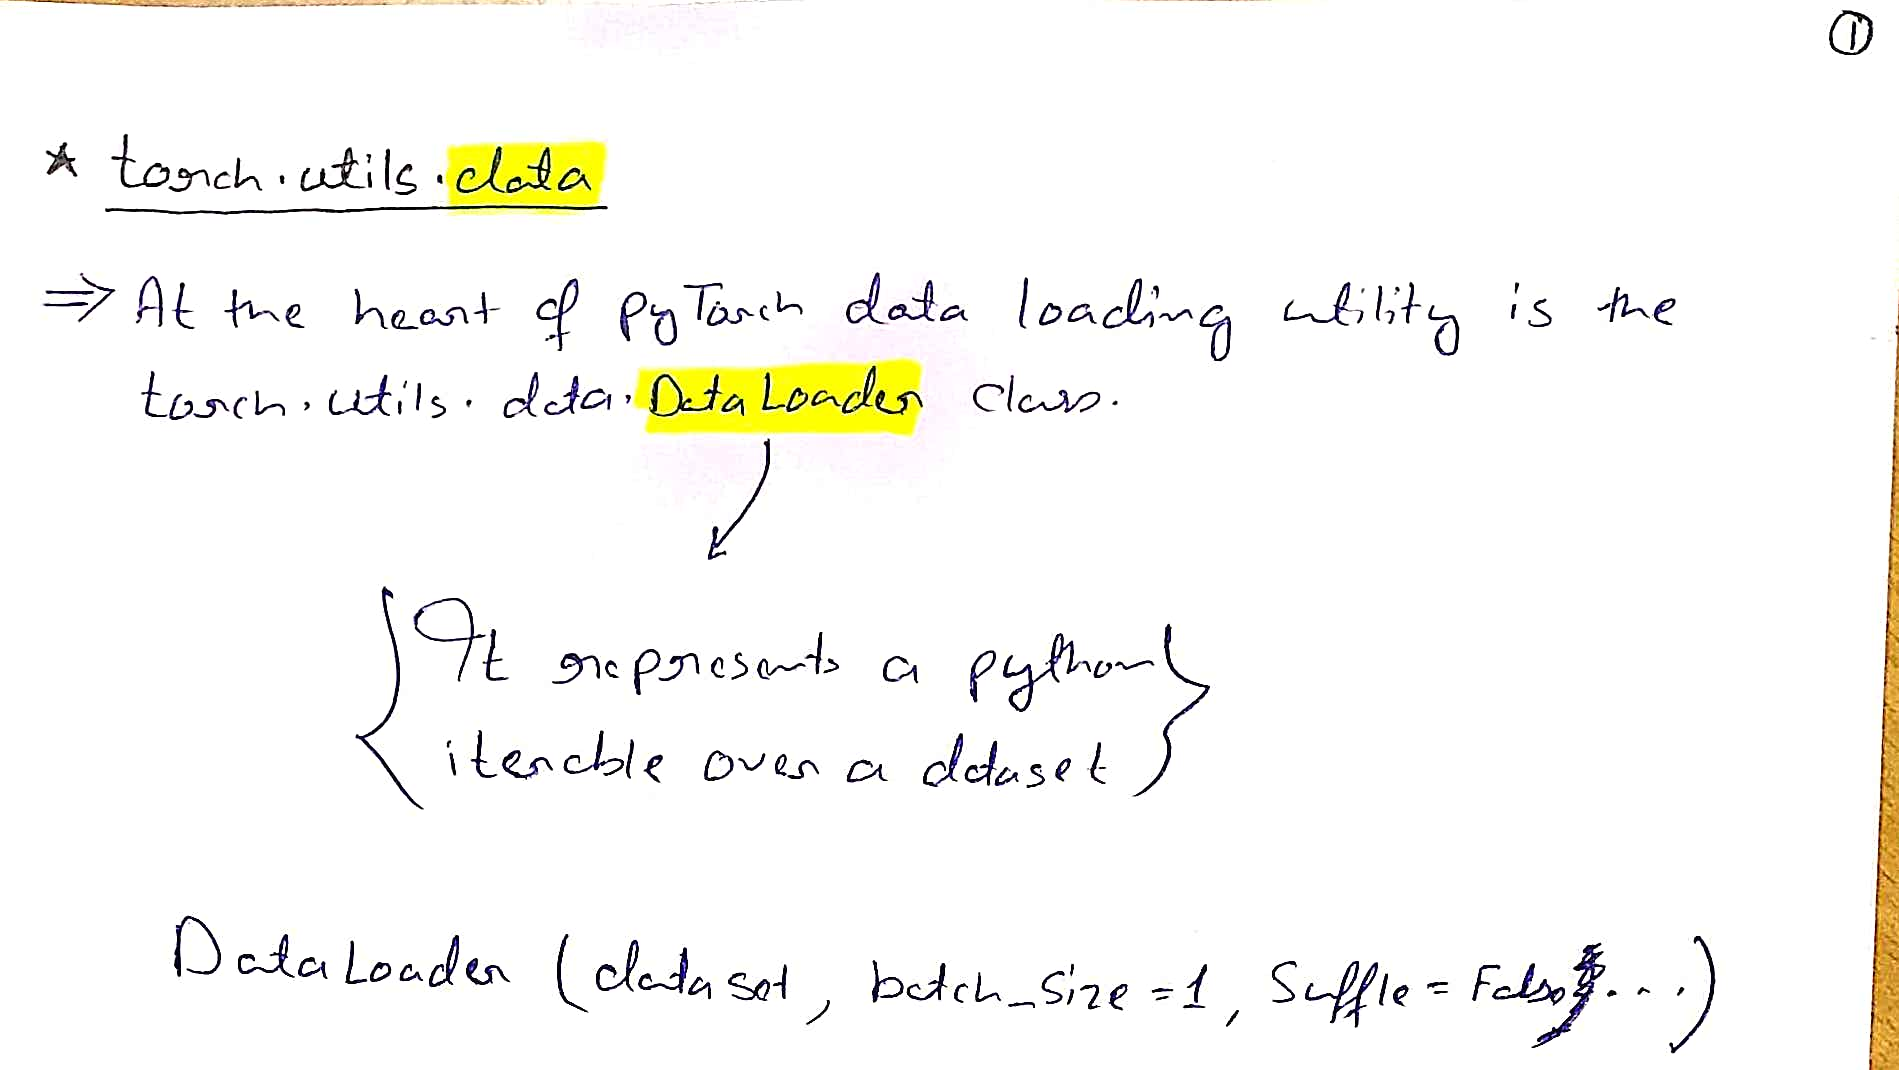 ①
★ torch.utils.data
⇒ At the heart of PyTorch data loading utility is the
torch.utils.data.DataLoader class.
It represents a python
iterable over a dataset
DataLoader (dataset, batch_size=1, Suffle = False, ...)